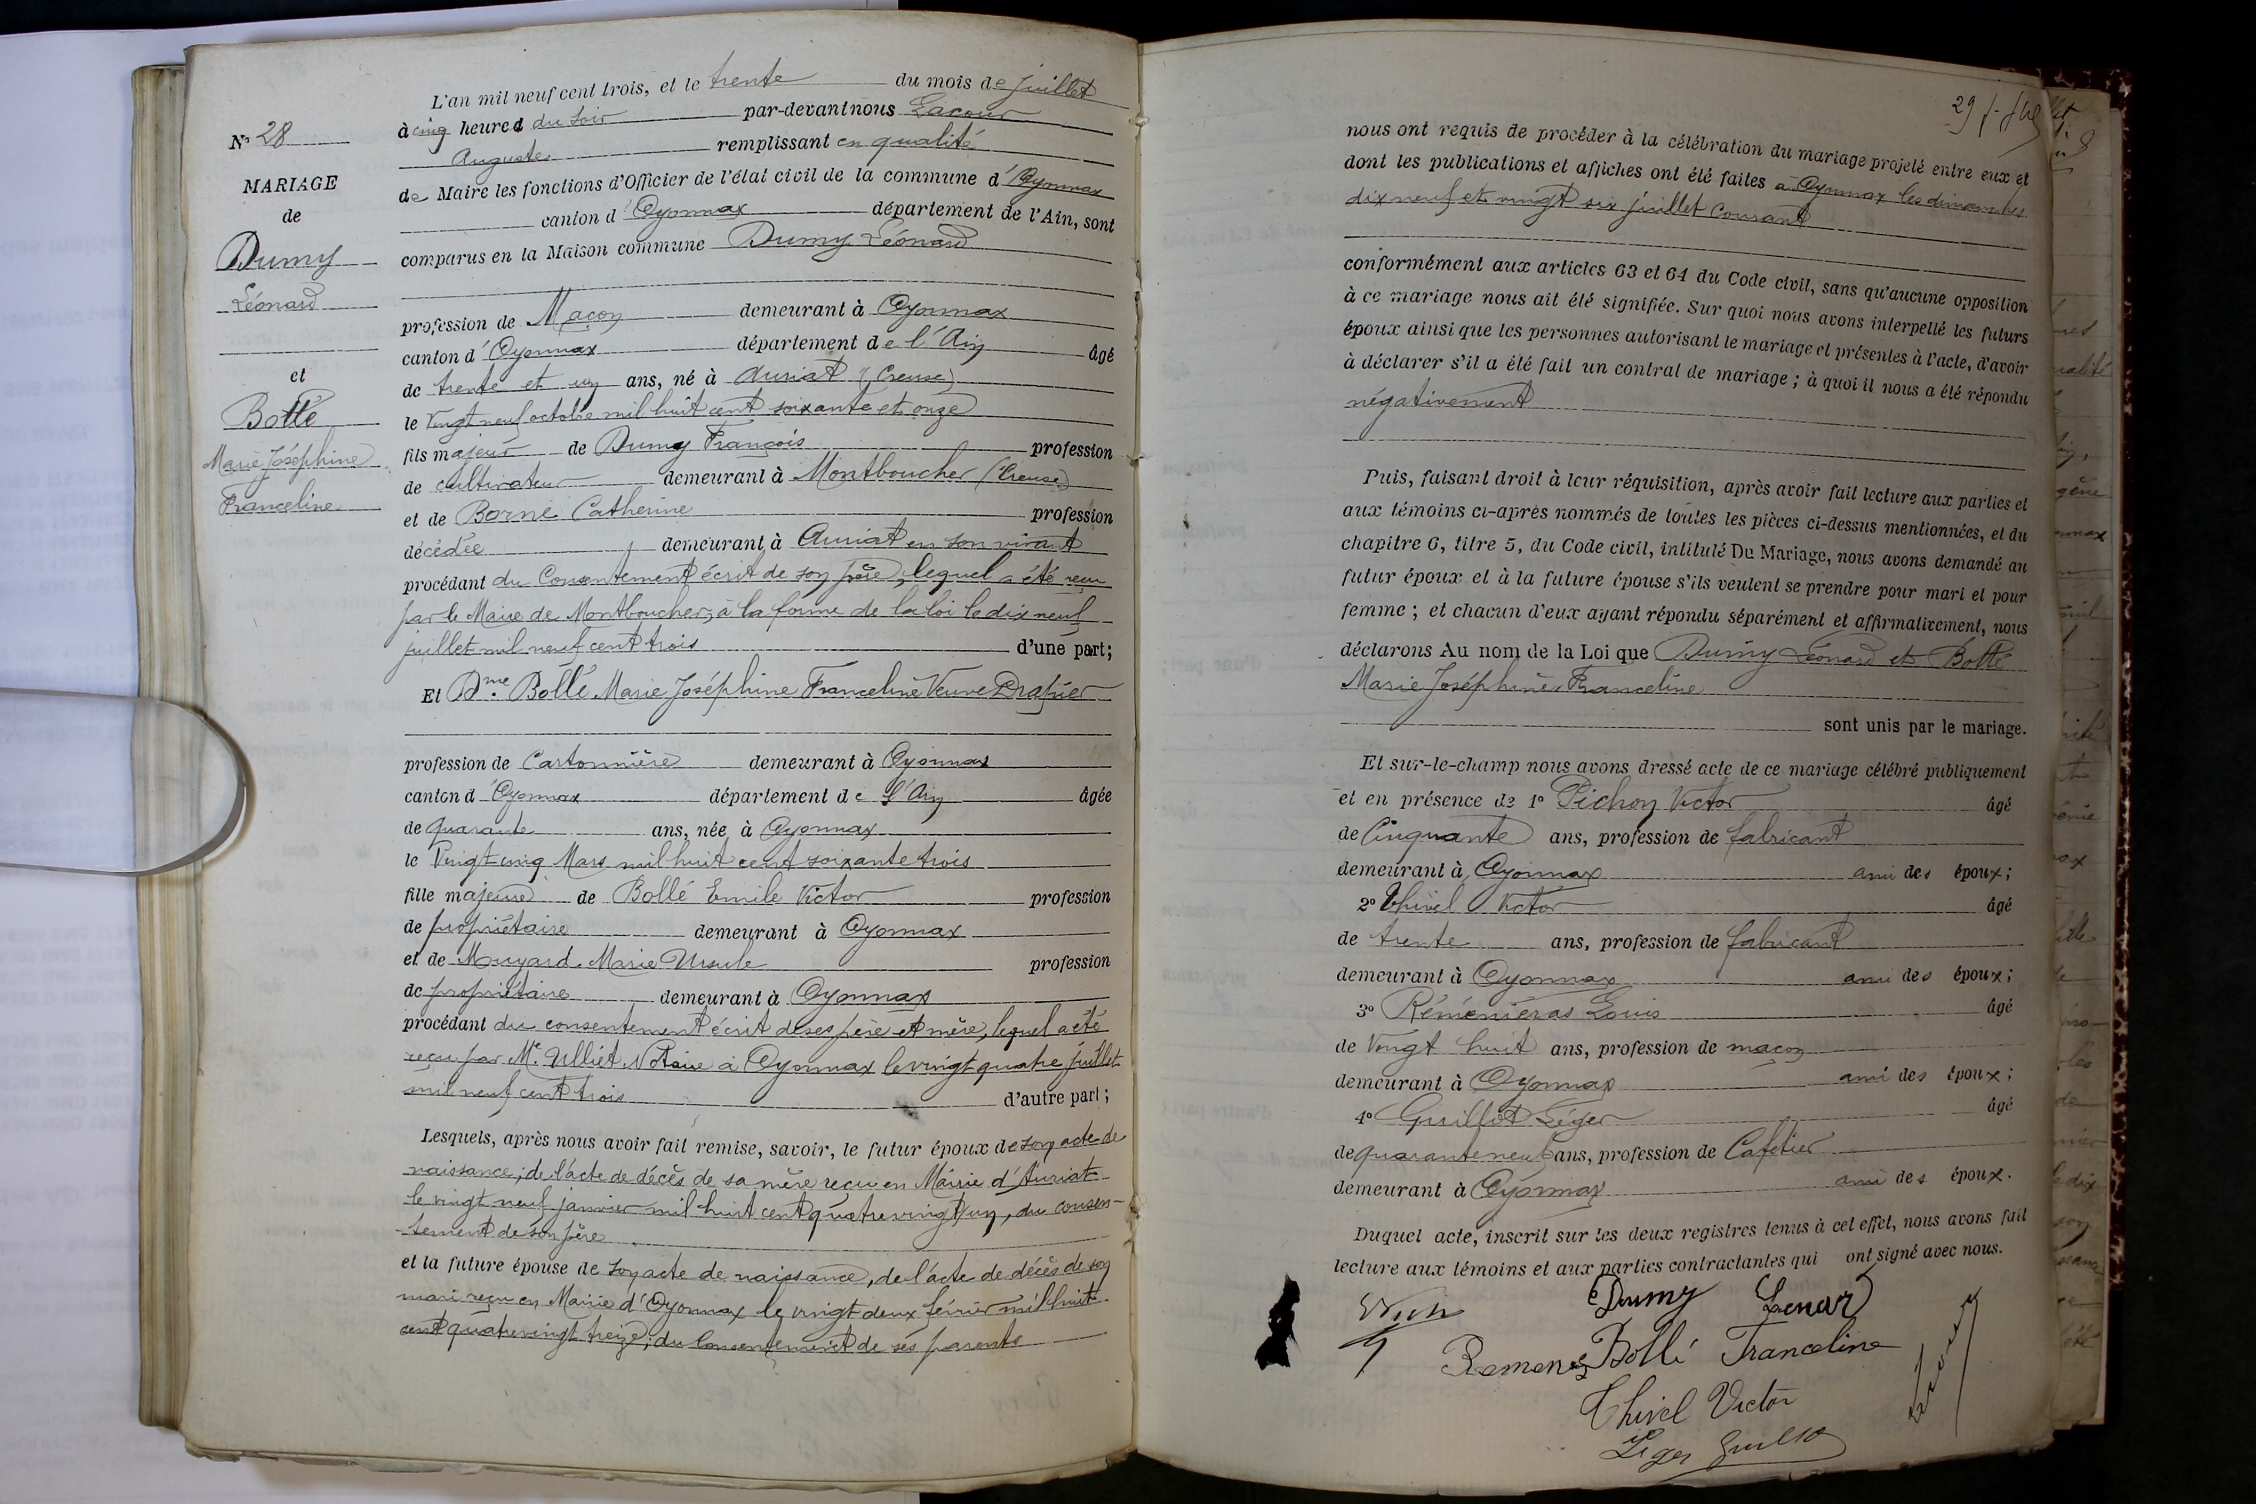 L'an mil neuf cent trois, et le trente du mois de juillet
à cinq heures du soir par-devant nous Lacour
Auguste remplissant en qualité
de Maire les fonctions d'Officier de l'état civil de la commune d'Oyonnax
canton d'Oyonnax département de l'Ain, sont
comparus en la Maison commune Dumy Léonard
profession de Maçon demeurant à Oyonnax
canton d'Oyonnax département de l'Ain âgé
de trente et un ans, né à Auriat (Creuse)
le vingt neuf octobre mil huit cent soixante et onze
fils majeur de Dumy François profession
de cultivateur demeurant à Montboucher (Creuse)
et de Borne Catherine profession
décédée demeurant à Auriat en son vivant
procédant du Consentement écrit de son père, lequel a été reçu
par le Maire de Montboucher, à la forme de la loi le dix neuf
juillet mil neuf cent trois d'une part;
Et Dme Bollé Marie Joséphine Franceline Veuve Drapier
profession de Cartonnière demeurant à Oyonnax
canton d'Oyonnax département de l'Ain âgée
de quarante ans, née à Oyonnax
le Vingt cinq Mars mil huit cent soixante trois
fille majeure de Bollé Emile Victor profession
de propriétaire demeurant à Oyonnax
et de Mouyard Marie Ursule profession
de propriétaire demeurant à Oyonnax
procédant du consentement écrit de ses père et mère, lequel a été
reçu par Me Ulliet Notaire à Oyonnax le vingt quatre juillet
mil neuf cent trois d'autre part;
Lesquels, après nous avoir fait remise, savoir, le futur époux de son acte de
naissance; de l'acte de décès de sa mère reçu en Mairie d'Auriat
le vingt neuf janvier mil huit cent quatre vingt un, du consen-
-tement de son père
et la future épouse de son acte de naissance, de l'acte de décès de son
mari reçu en Mairie d'Oyonnax le vingt deux février mil huit
cent quatre vingt treize; du Consentement de ses parents
No 28
MARIAGE
de
Dumy
Léonard
et
Bollé
Marie Joséphine
Franceline
29 f.
nous ont requis de procéder à la célébration du mariage projeté entre eux et
dont les publications et affiches ont été faites à Oyonnax les dimanches
dix neuf et vingt six juillet Courant
conformément aux articles 63 et 64 du Code civil, sans qu'aucune opposition
à ce mariage nous ait été signifiée. Sur quoi nous avons interpellé les futurs
époux ainsi que les personnes autorisant le mariage et présentes à l'acte, d'avoir
à déclarer s'il a été fait un contrat de mariage; à quoi il nous a été répondu
négativement
Puis, faisant droit à leur réquisition, après avoir fait lecture aux parties et
aux témoins ci-après nommés de toutes les pièces ci-dessus mentionnées, et du
chapitre 6, titre 5, du Code civil, intitulé Du Mariage, nous avons demandé au
futur époux et à la future épouse s'ils veulent se prendre pour mari et pour
femme; et chacun d'eux ayant répondu séparément et affirmativement, nous
déclarons Au nom de la Loi que Dumy Léonard et Bollé
Marie Joséphine Franceline
sont unis par le mariage.
Et sur-le-champ nous avons dressé acte de ce mariage célébré publiquement
et en présence de 1o Pichon Victor âgé
de Cinquante ans, profession de fabricant
demeurant à Oyonnax ami des époux;
2o Thivel Victor âgé
de trente ans, profession de fabricant
demeurant à Oyonnax ami des époux;
3o Réméniéras Louis âgé
de Vingt huit ans, profession de maçon
demeurant à Oyonnax ami des époux;
4o Guillot Léger âgé
de quarante neuf ans, profession de Cafetier
demeurant à Oyonnax ami des époux.
Duquel acte, inscrit sur les deux registres tenus à cet effet, nous avons fait
lecture aux témoins et aux parties contractantes qui ont signé avec nous.
Dumy Lenard
Bollé Franceline
Thivel Victor
Leger Guillot